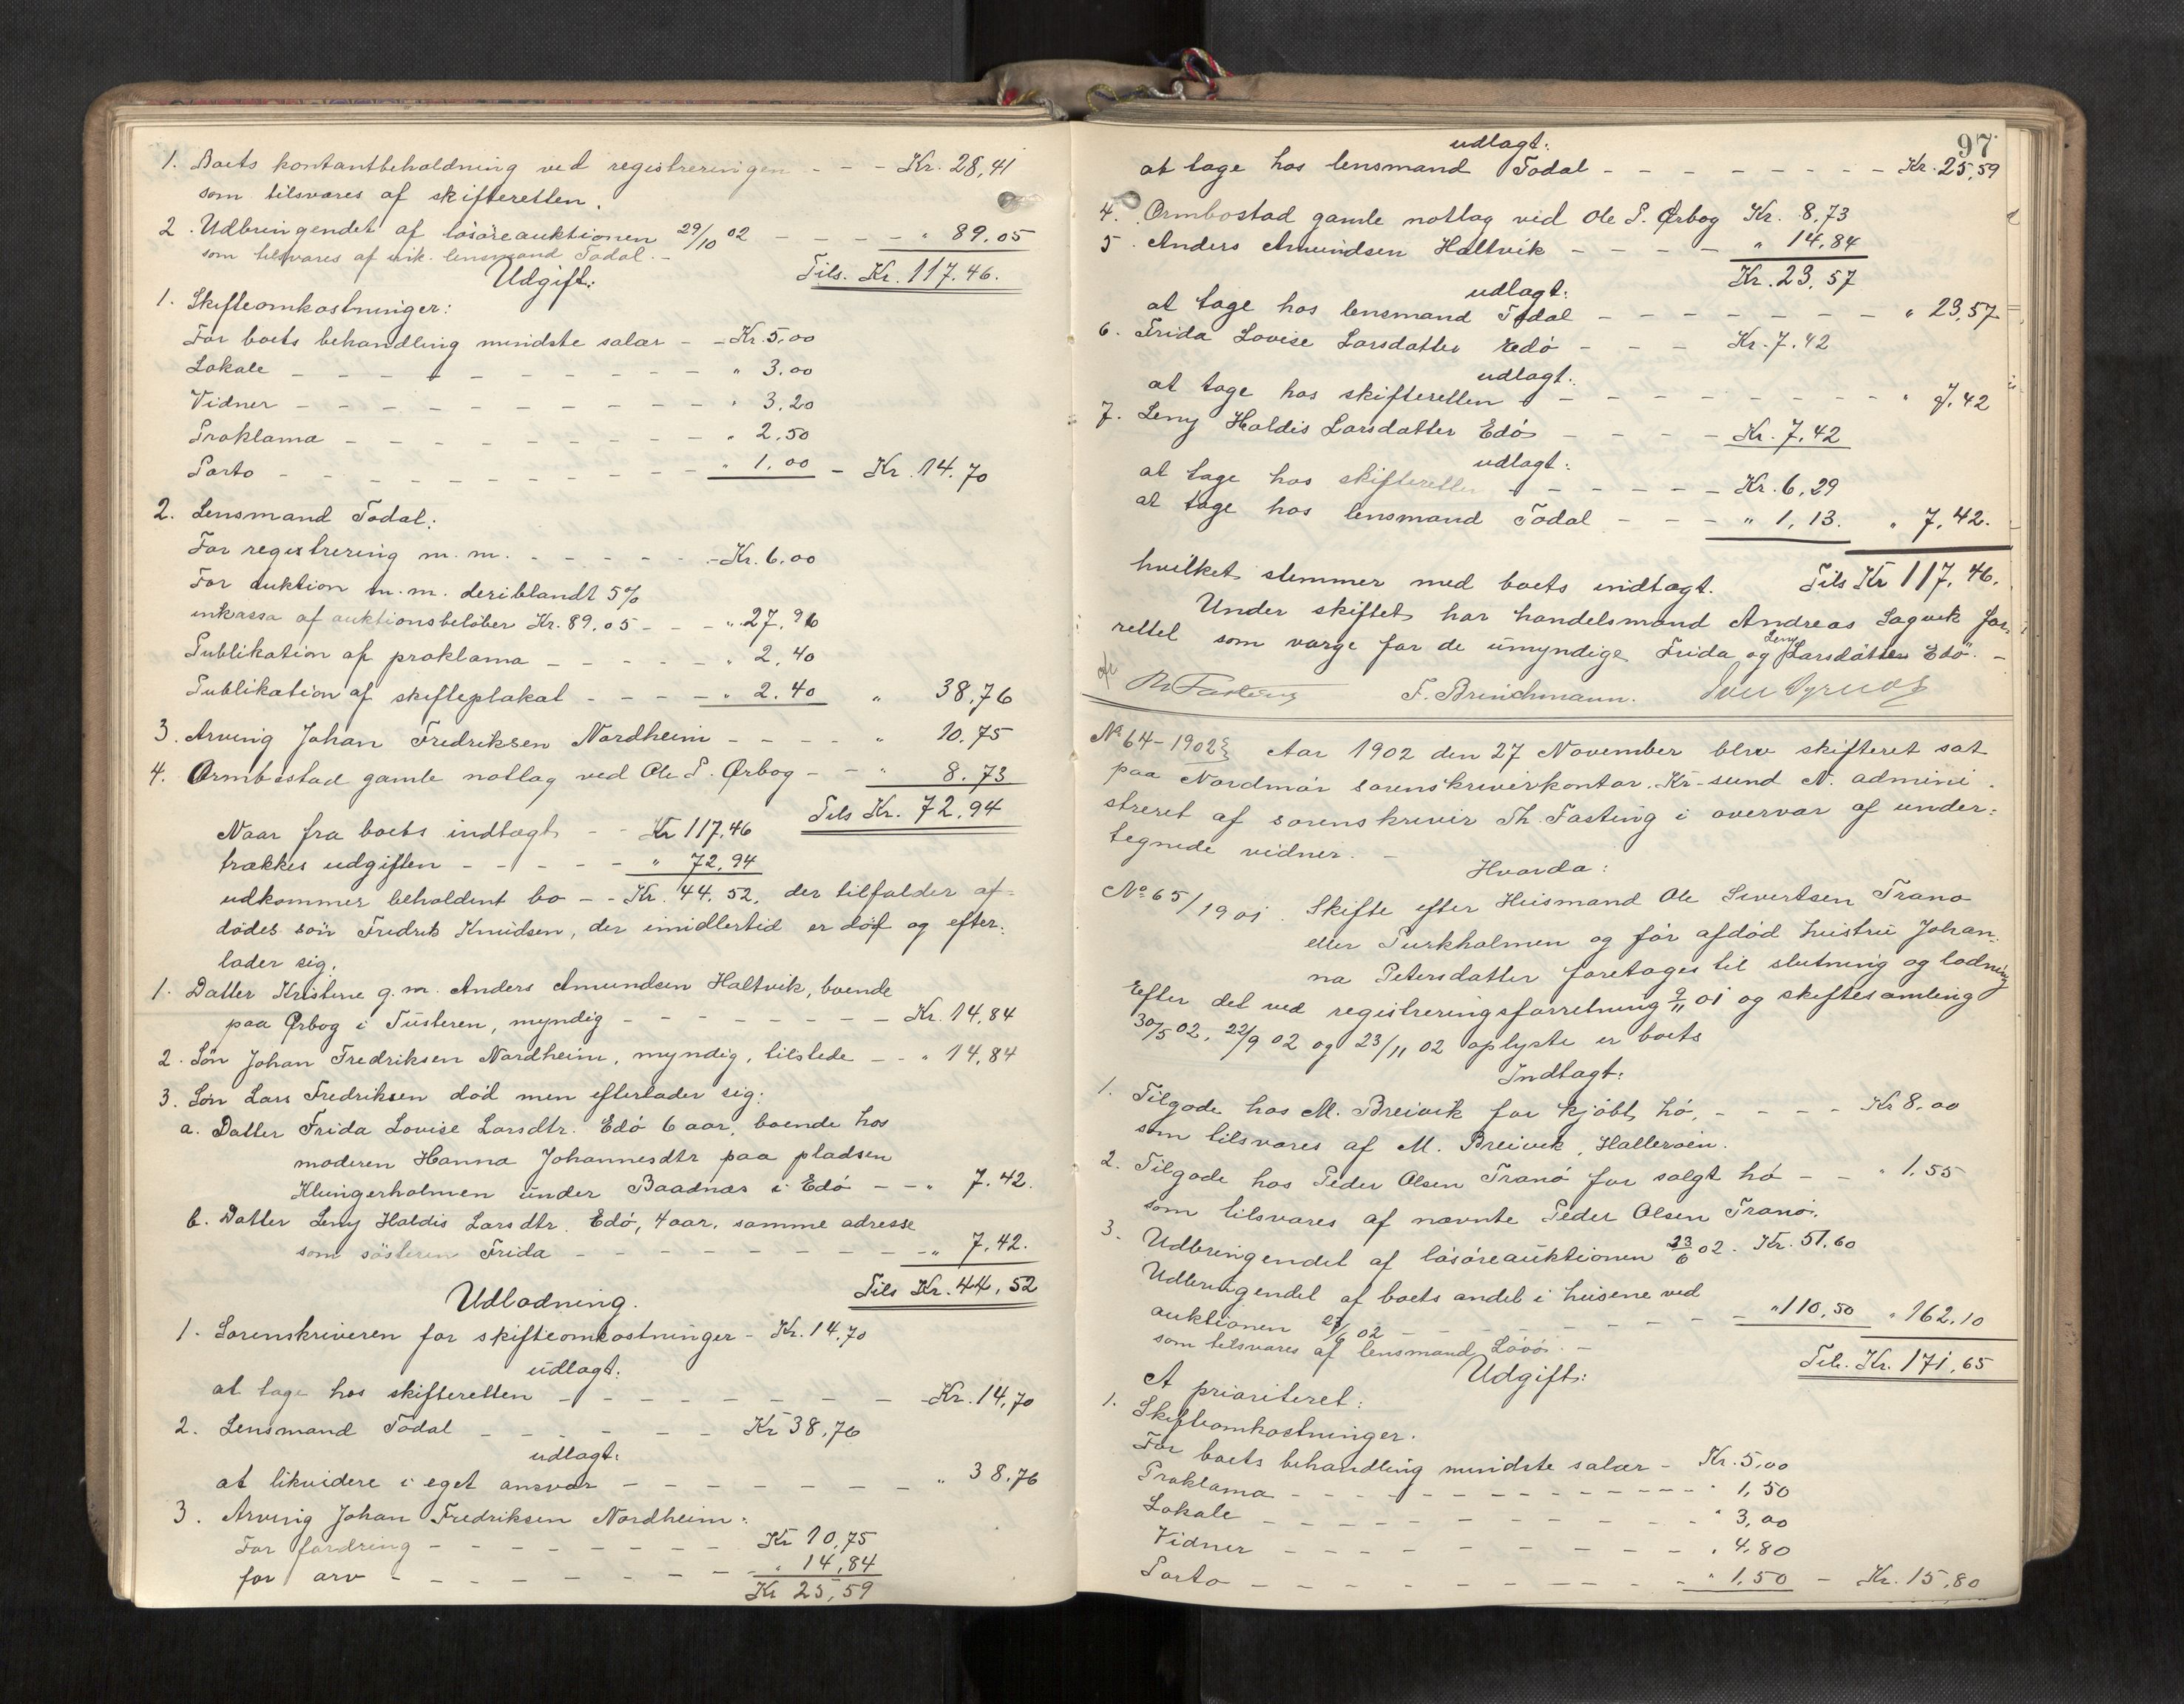 1. Boets kontantbeholdning ved registreringen - - - Kr. 28,41
som tilsvares af skifteretten.
2. Udbringendet af lösöreauktionen 29/10 02 - - - - " 89.05
som tilsvares af lensmand Todal. -
Tils. Kr. 117.46.
Udgift:
1. Skifteomkostninger:
For boets behandling mindste salær - - Kr. 5,00
Lokale - - - - " 3.00
Vidner - - - - " 3,20
Proklama - - - - " 2,50
Porto - - - - " 1,00 - Kr. 14.70
2. Lensmand Todal:
For registrering m.m. - - - - Kr. 6,00
For auktion m.m. deriblandt 5%
inkasso af auktionsbeløbet Kr. 89.05 - - - " 27,96
Publikation af proklama - - - - " 2,40
Publikation af skifteplakat - - - - " 2.40 " 38,76
3. Arving Johan Fredriksen Nordheim - - - - " 10.75
4. Ormbostad gamle notlag ved Ole P. Ørbog - - " 8.73
Tils Kr. 72,94
Naar fra boets indtægt - - Kr 117,46
trækkes udgiften - - - - " 72,94
udkommer beholdent bo - - Kr. 44.52, der tilfalder af=
dödes sön Fredrik Knudsen, der imidlertid er död og efter:
lader sig.
1. Datter Kristine g.m. Anders Amundsen Haltvik, boende
paa Ørbog i Tusteren, myndig - - - - Kr. 14,84
2. Sön Johan Fredriksen Nordheim, myndig, tilstede - - " 14,84
3. Sön Lars Fredriksen död men efterlader sig:
a. Datter Frida Lovise Larsdtr. Edö 6 aar, boende hos
moderen Hanna Johannesdtr paa pladsen
Klingerholmen under Baadnæs i Edö - - " 7.42.
b. Datter Leny Haldis Larsdtr. Edö, 4 aar, samme adresse
som sösteren Frida - - - - " 7,42.
Tils Kr. 44,52
Udlodning.
1. Sorenskriveren for skifteomkostninger - Kr. 14,70
udlagt:
at tage hos skifteretten - - - - Kr. 14,70
2. Lensmand Todal - - - - Kr 38,76
udlagt:
at likvidere i eget ansvar - - - - " 38,76
3. Arving Johan Fredriksen Nordheim:
For fordring - - - - Kr 10,75
for arv - - - - " 14,84
Kr 25,59
97
udlagt:
at tage hos lensmand Todal - - - - Kr. 25,59
4. Ormbostad gamle notlag ved Ole P. Ørbog Kr. 8,73
5. Anders Amundsen Haltvik - - - - " 14,84
Kr. 23,57
udlagt:
at tage hos lensmand Todal - - - - " 23,57
6. Frida Lovise Larsdatter Edö - - - Kr. 7.42
udlagt:
at tage hos skifteretten - - - - " 7,42
7. Leny Haldis Larsdatter Edö - - - - Kr. 7,42
udlagt:
at tage hos skifteretten - - - - Kr. 6,29
at tage hos lensmand Todal - - - " 1,13. " 7,42.
hvilket stemmer med boets indtægt. Tils Kr 117,46.
Under skiftet har handelsmand Andreas Sagvik for=
rettet som værge for de umyndige Frida og Leny Larsdatter Edö. -
Th Fasting F. Brinchmann.
No 64-1902 Aar 1902 den 27 November blev skifteret sat
paa Nordmör sorenskriverkontor, Kr-sund N. admini:
streret af sorenskriver Th. Fasting i overvær af under:
tegnede vidner. -
Hvorda:
No 65/1901. Skifte efter Huismand Ole Sivertsen Tranö
eller Purkholmen og för afdöd hustru Johan:
na Petersdatter foretages til slutning og lodning
Efter det ved registreringsforretning 9/11 01 og skiftesamling
30/5 02, 22/9 02 og 23/11 02 oplyste er boets
Indtægt:
1. Tilgode hos M. Breivik for kjöbt hö, - - - - Kr 8,00
som tilsvares af M. Breivik, Halleröen.
2. Tilgode hos Peder Olsen Tranö for solgt hö - - " 1,55
som tilsvares af nævnte Peder Olsen Tranö.
3. Udbringendet af lösöreauktionen 23/6 02. Kr. 51,60
Udbringendet af boets andel i husene ved
auktionen 23/6 02 - - - - " 110,50 " 162,10
som tilsvares af lensmand Lövö. -
Tils. Kr. 171,65
Udgift:
A prioriteret:
1. Skifteomkostninger.
For boets behandling mindste salær - Kr. 5,00
Proklama - - - - " 1,50
Lokale - - - - " 3,00
Vidner - - - - " 4,80
Porto - - - - " 1,50 - Kr. 15,80